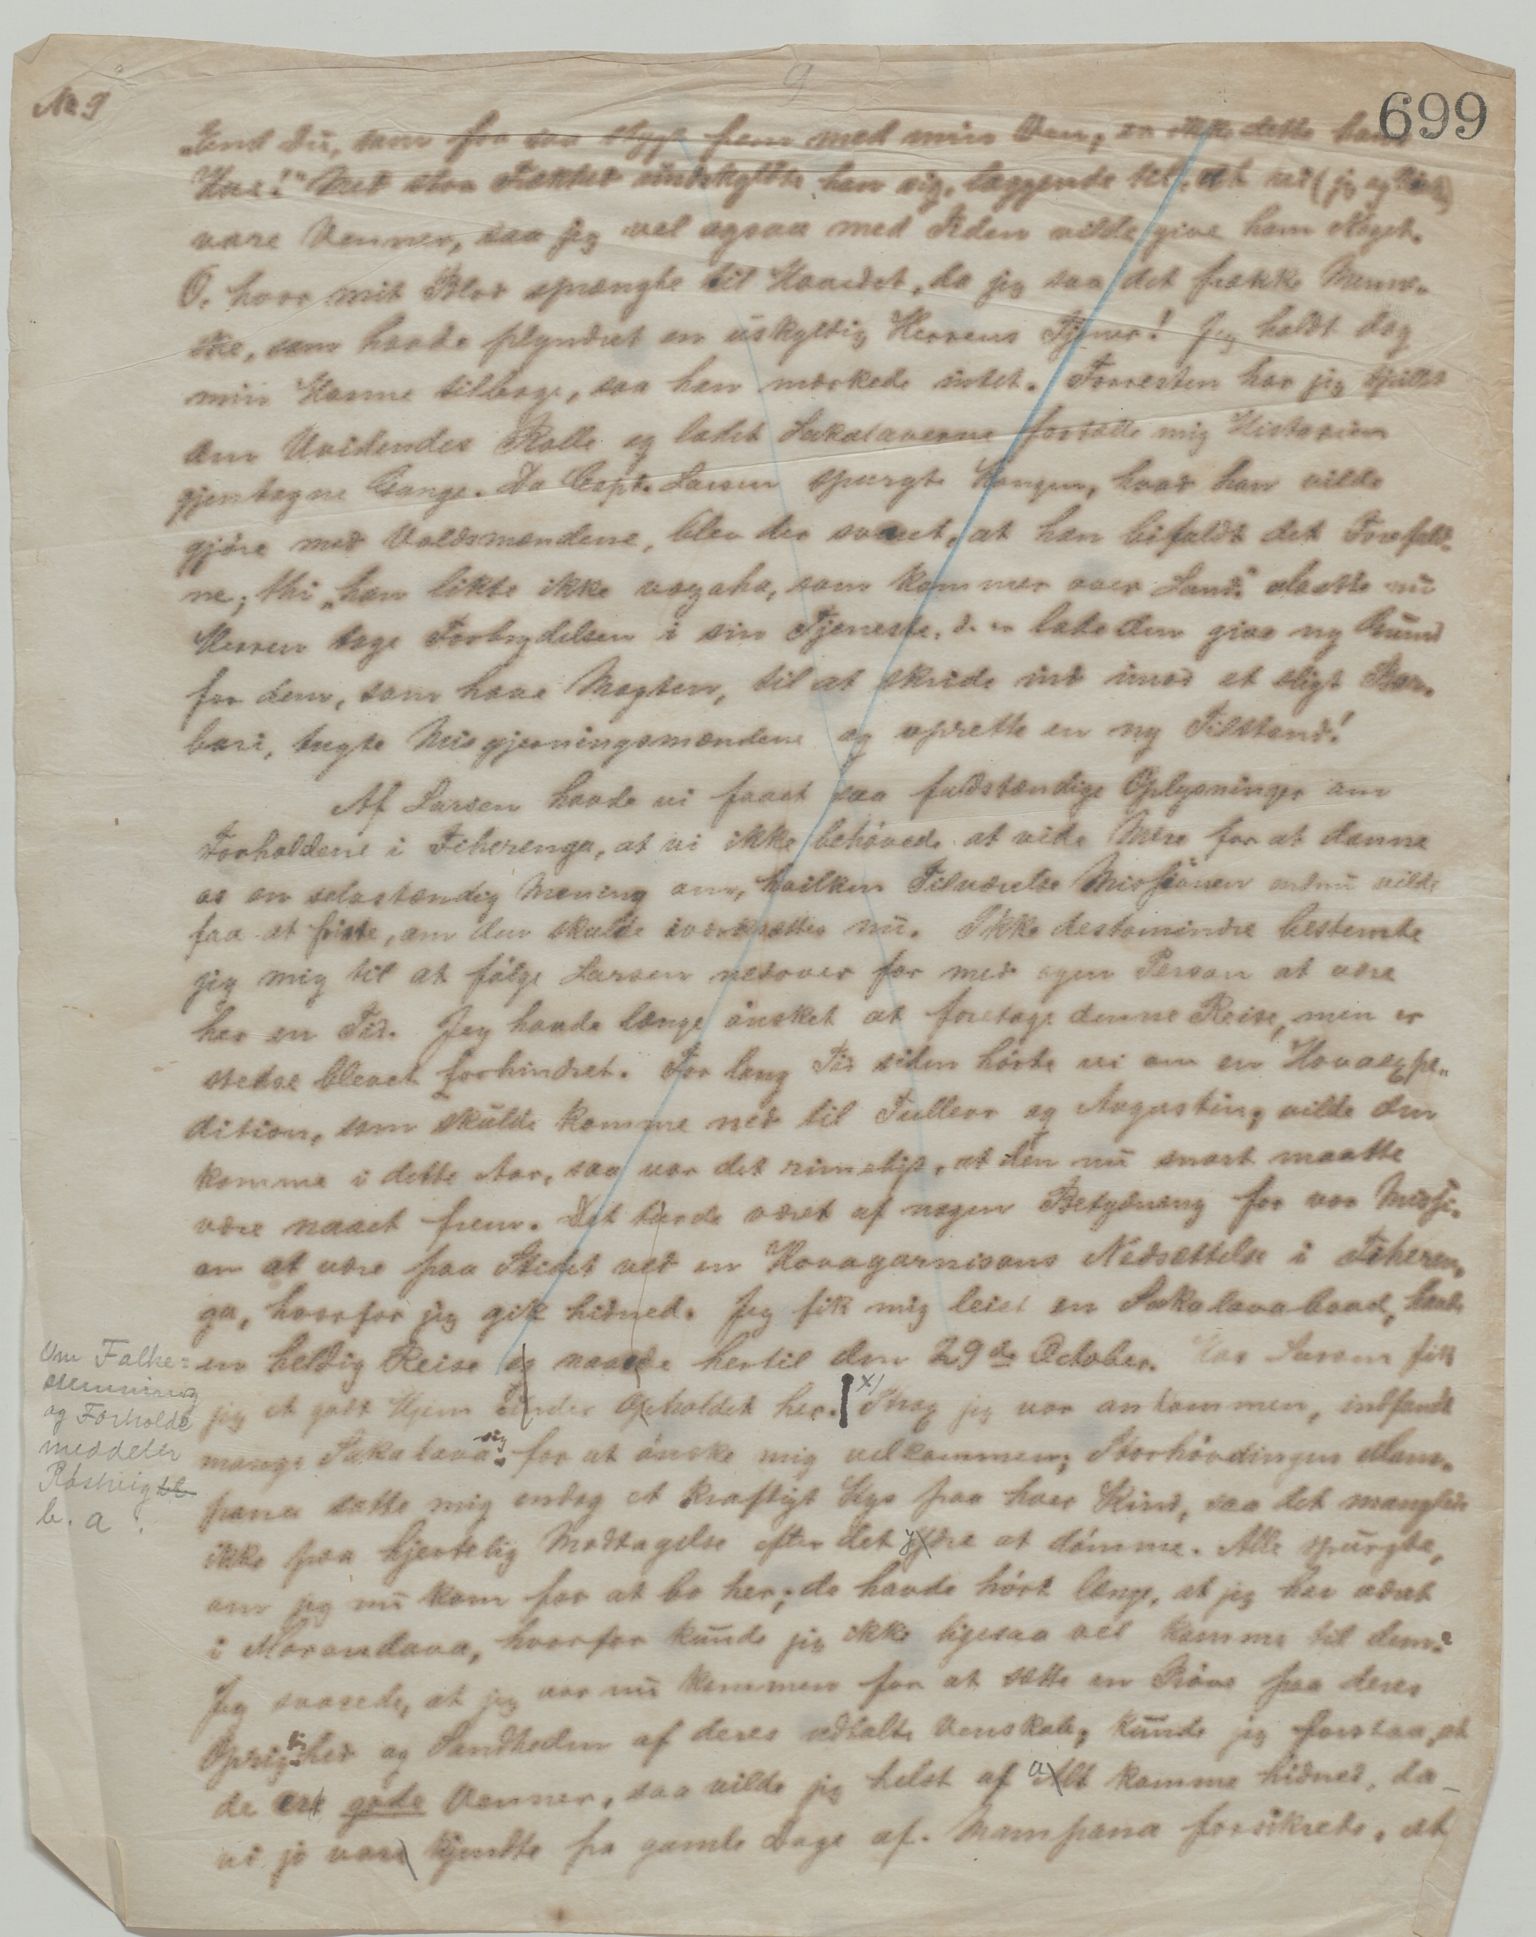 No 9
9
699
End Du, som for saa stygt frem med min Ven, er ikke dette hans
Hue!" Med store Fakter undskyldte han sig, læggende til, at vi (jeg og
vare Venner, saa jeg vel ogsaa med Tiden vilde give ham Noget.
O, hvor mit Blod sprængte til Hovedet, da jeg saa det frække Menne-
ske, som havde plyndret en uskyldig Herrens Tjener! Jeg holdt dog
min Harme tilbage, saa han mærkede intet. Forresten har jeg spillet
den Uvidendes Rolle og ladet Sakalaverne fortælle mig Historien
gjentagne Gange. Da Capt. Larsen spurgte Kongen, hvad han vilde
gjøre med Voldsmændene, blev der svaret, at han bifaldt det Forefald-
ne; thi „han likte ikke vazaha, som kommer over Land." Maatte nu
Herren tage Forbrydelsen i sin Tjeneste, d. e. lade den give ny Grund
for dem, som have Magten, til at skride ind imod et sligt Bar-
bari, tugte Misgjerningsmændene og oprette en ny Tilstand!
Af Larsen havde vi faaet saa fuldstændige Oplysninger om
Forholdene i Fiherenga, at vi ikke behøvede at vide Mere for at danne
os en selvstændig Mening om, hvilken Tilværelse Missionen endnu vilde
faa at friste, om den skulde iværksættes nu. Ikke destomindre bestemte
jeg mig til at følge Larsen nedover for med egen Person at være
her en Tid. Jeg havde længe ønsket at foretage denne Reise, men er
stedse blevet forhindret. For lang Tid siden hørte vi om en Hovaexpe-
dition, som skulde komme ned til Tullear og Augustin; vilde den
komme i dette Aar, saa var det rimeligt, at den nu snart maatte
være naaet frem. Det turde været af nogen Betydning for vor Missi-
on at være paa Stedet ved en Hovagarnisons Nedsættelse i Fiheren-
ga, hvorfor jeg gik hidned. Jeg fik mig leiet en Sakalavabaad, havde
en heldig Reise og naaede hertil den 29de October. Hos Larsen fik
jeg et godt Hjem under Opholdet her. x) Strax jeg var ankommen, indfandt
mange Sakalava sig for at ønske mig velkommen; Storhøvdingen Mam-
pana satte mig endog et kraftigt Kys paa hver Kind, saa det manglede
ikke paa hjertelig Modtagelse efter det ydre at dømme. Alle spurgte,
om jeg nu kom for at bo her; de havde hørt længe, at jeg har været
i Morondava, hvorfor kunde jeg ikke ligesaa vel komme til dem?
Jeg svarede, at jeg var nu kommen for at sætte en Prøve paa deres
Oprigtighed og Sandheden af deres udtalte Venskab; kunde jeg forstaa, at
de er gode Venner, saa vilde jeg helst af Alt komme hidned, da
vi jo vare kjendte fra gamle Dage af. Mampana forsikrede, at
Om Folke=
stemning
og Forholde
meddeler
Røstvig
b. a.